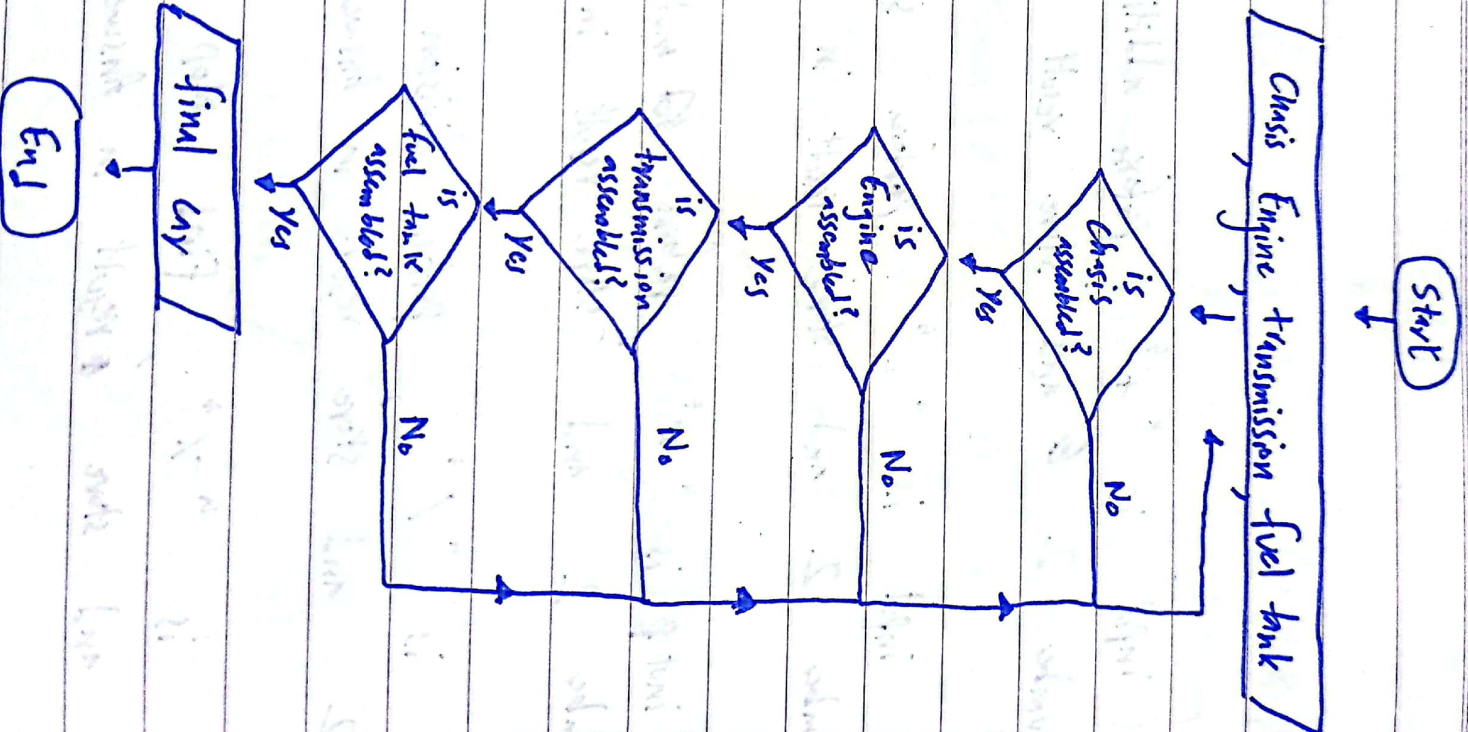 Start
Chasis, Engine, transmission, fuel tank
is
Chasis
assembled?
No
Yes
is
Engine
assembled?
No.
Yes
is
transmission
assembled?
No
Yes
is
fuel tank
assembled?
No
Yes
final Car
End